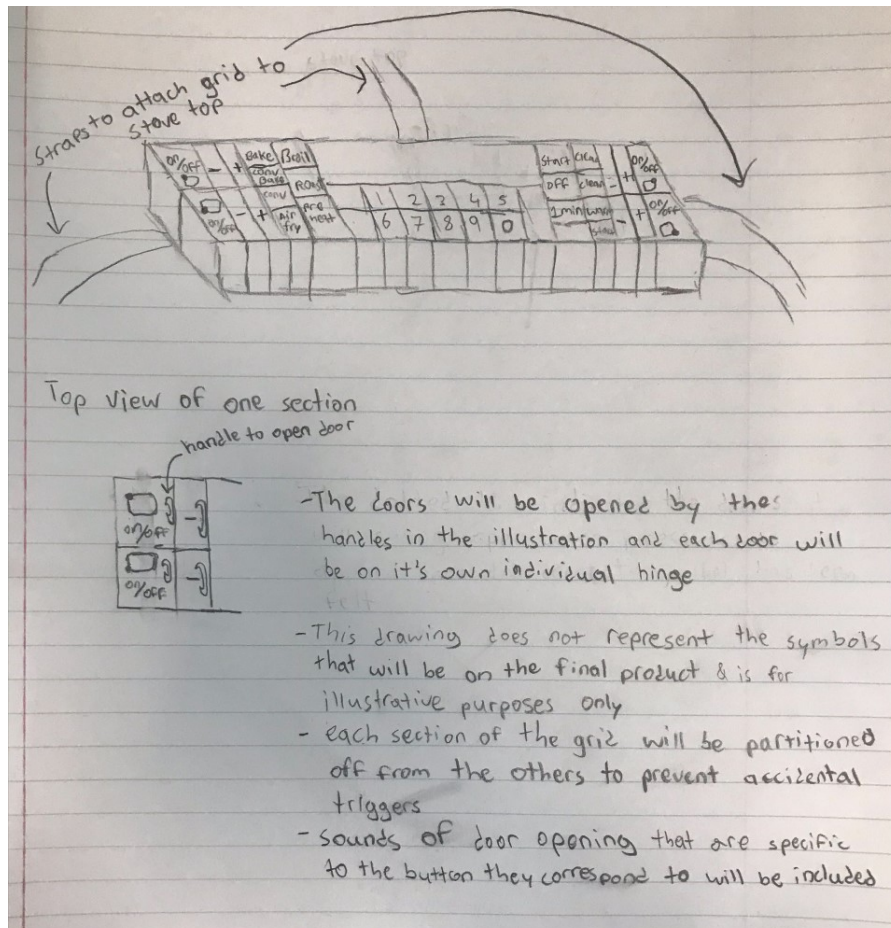 Straps to attach grid to
stove top
on/off - + Bake Broil
Conv Bake Roast
on/off - + Conv Pre heat
Air fry
1 2 3 4 5
6 7 8 9 0
Start - + on/off
OFF
1 min - + on/off
Top view of one section
handle to open door
on/off -
on/off -
-The doors will be opened by the
handles in the illustration and each door will
be on it's own individual hinge
-This drawing does not represent the symbols
that will be on the final product & is for
illustrative purposes only
- each section of the grid will be partitioned
off from the others to prevent accidental
triggers
- sounds of door opening that are specific
to the button they correspond to will be included